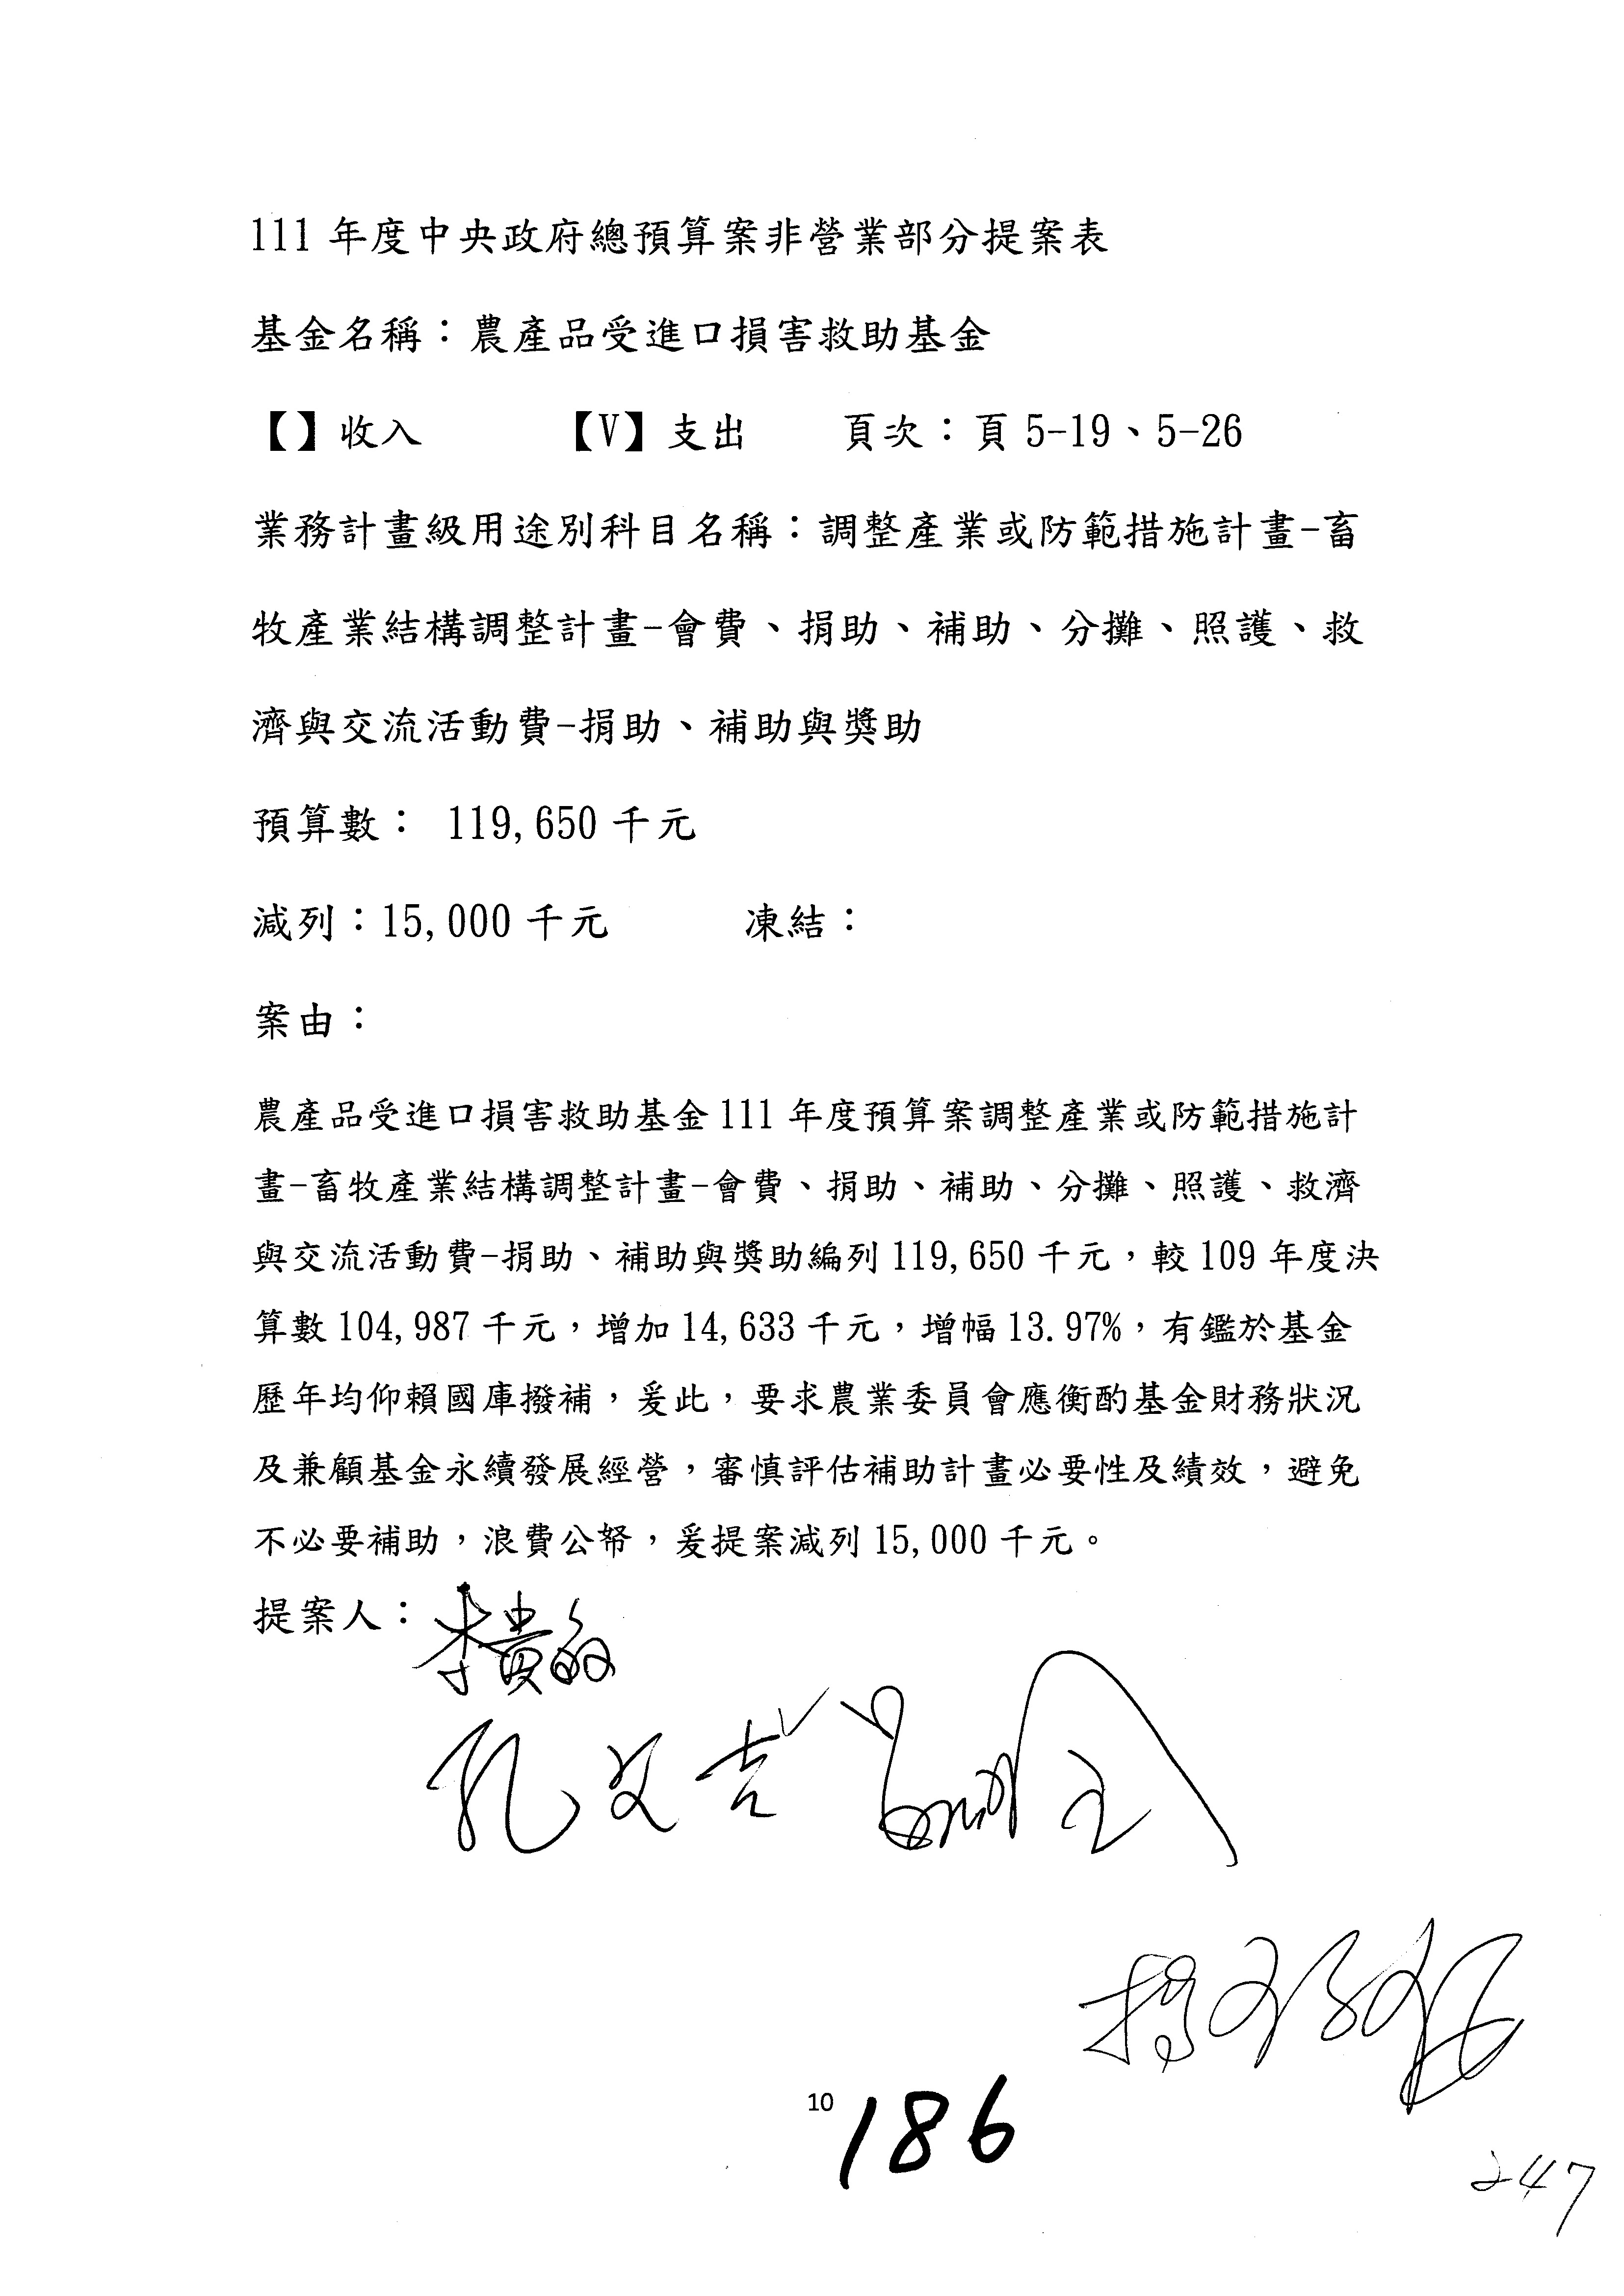 111 年度中央政府總預算案非營業部分提案表
基金名稱：農產品受進口損害救助基金
【】收入 【V】支出 頁次：頁 5-19、5-26
業務計畫級用途別科目名稱：調整產業或防範措施計畫-畜
牧產業結構調整計畫-會費、捐助、補助、分攤、照護、救
濟與交流活動費-捐助、補助與獎助
預算數： 119,650 千元
減列：15,000 千元 凍結：
案由：
農產品受進口損害救助基金 111 年度預算案調整產業或防範措施計
畫-畜牧產業結構調整計畫-會費、捐助、補助、分攤、照護、救濟
與交流活動費-捐助、補助與獎助編列 119,650 千元，較 109 年度決
算數 104,987 千元，增加 14,633 千元，增幅 13.97%，有鑑於基金
歷年均仰賴國庫撥補，爰此，要求農業委員會應衡酌基金財務狀況
及兼顧基金永續發展經營，審慎評估補助計畫必要性及績效，避免
不必要補助，浪費公帑，爰提案減列 15,000 千元。
提案人：李貴敏
孔文吉
10
186
247